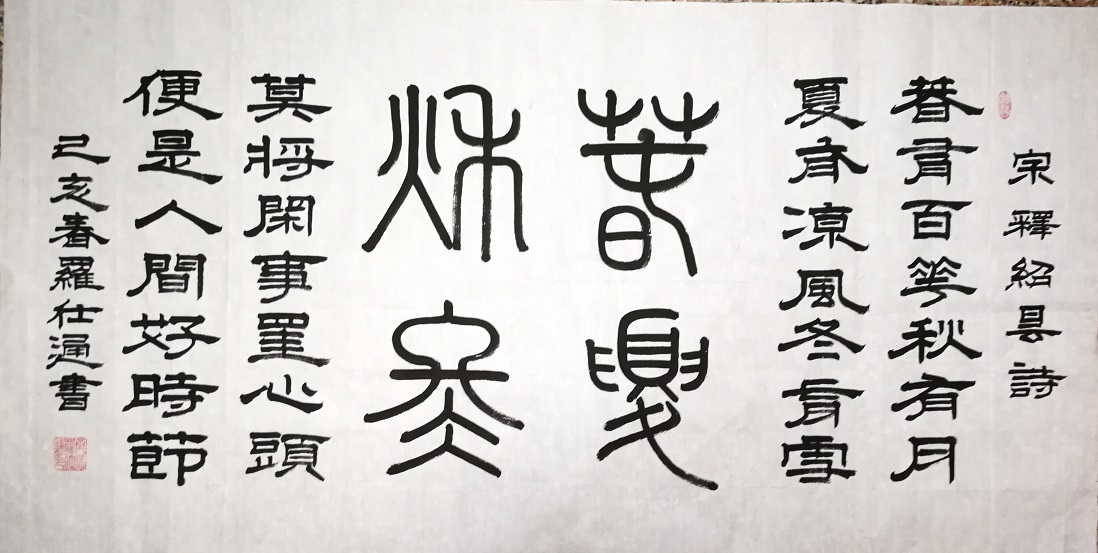 宗釋紹曇詩
春有百花秋有月
夏有涼風冬有雪
春夏
秋冬
莫將閑事罣心頭
便是人間好時節
己亥春羅仕通書